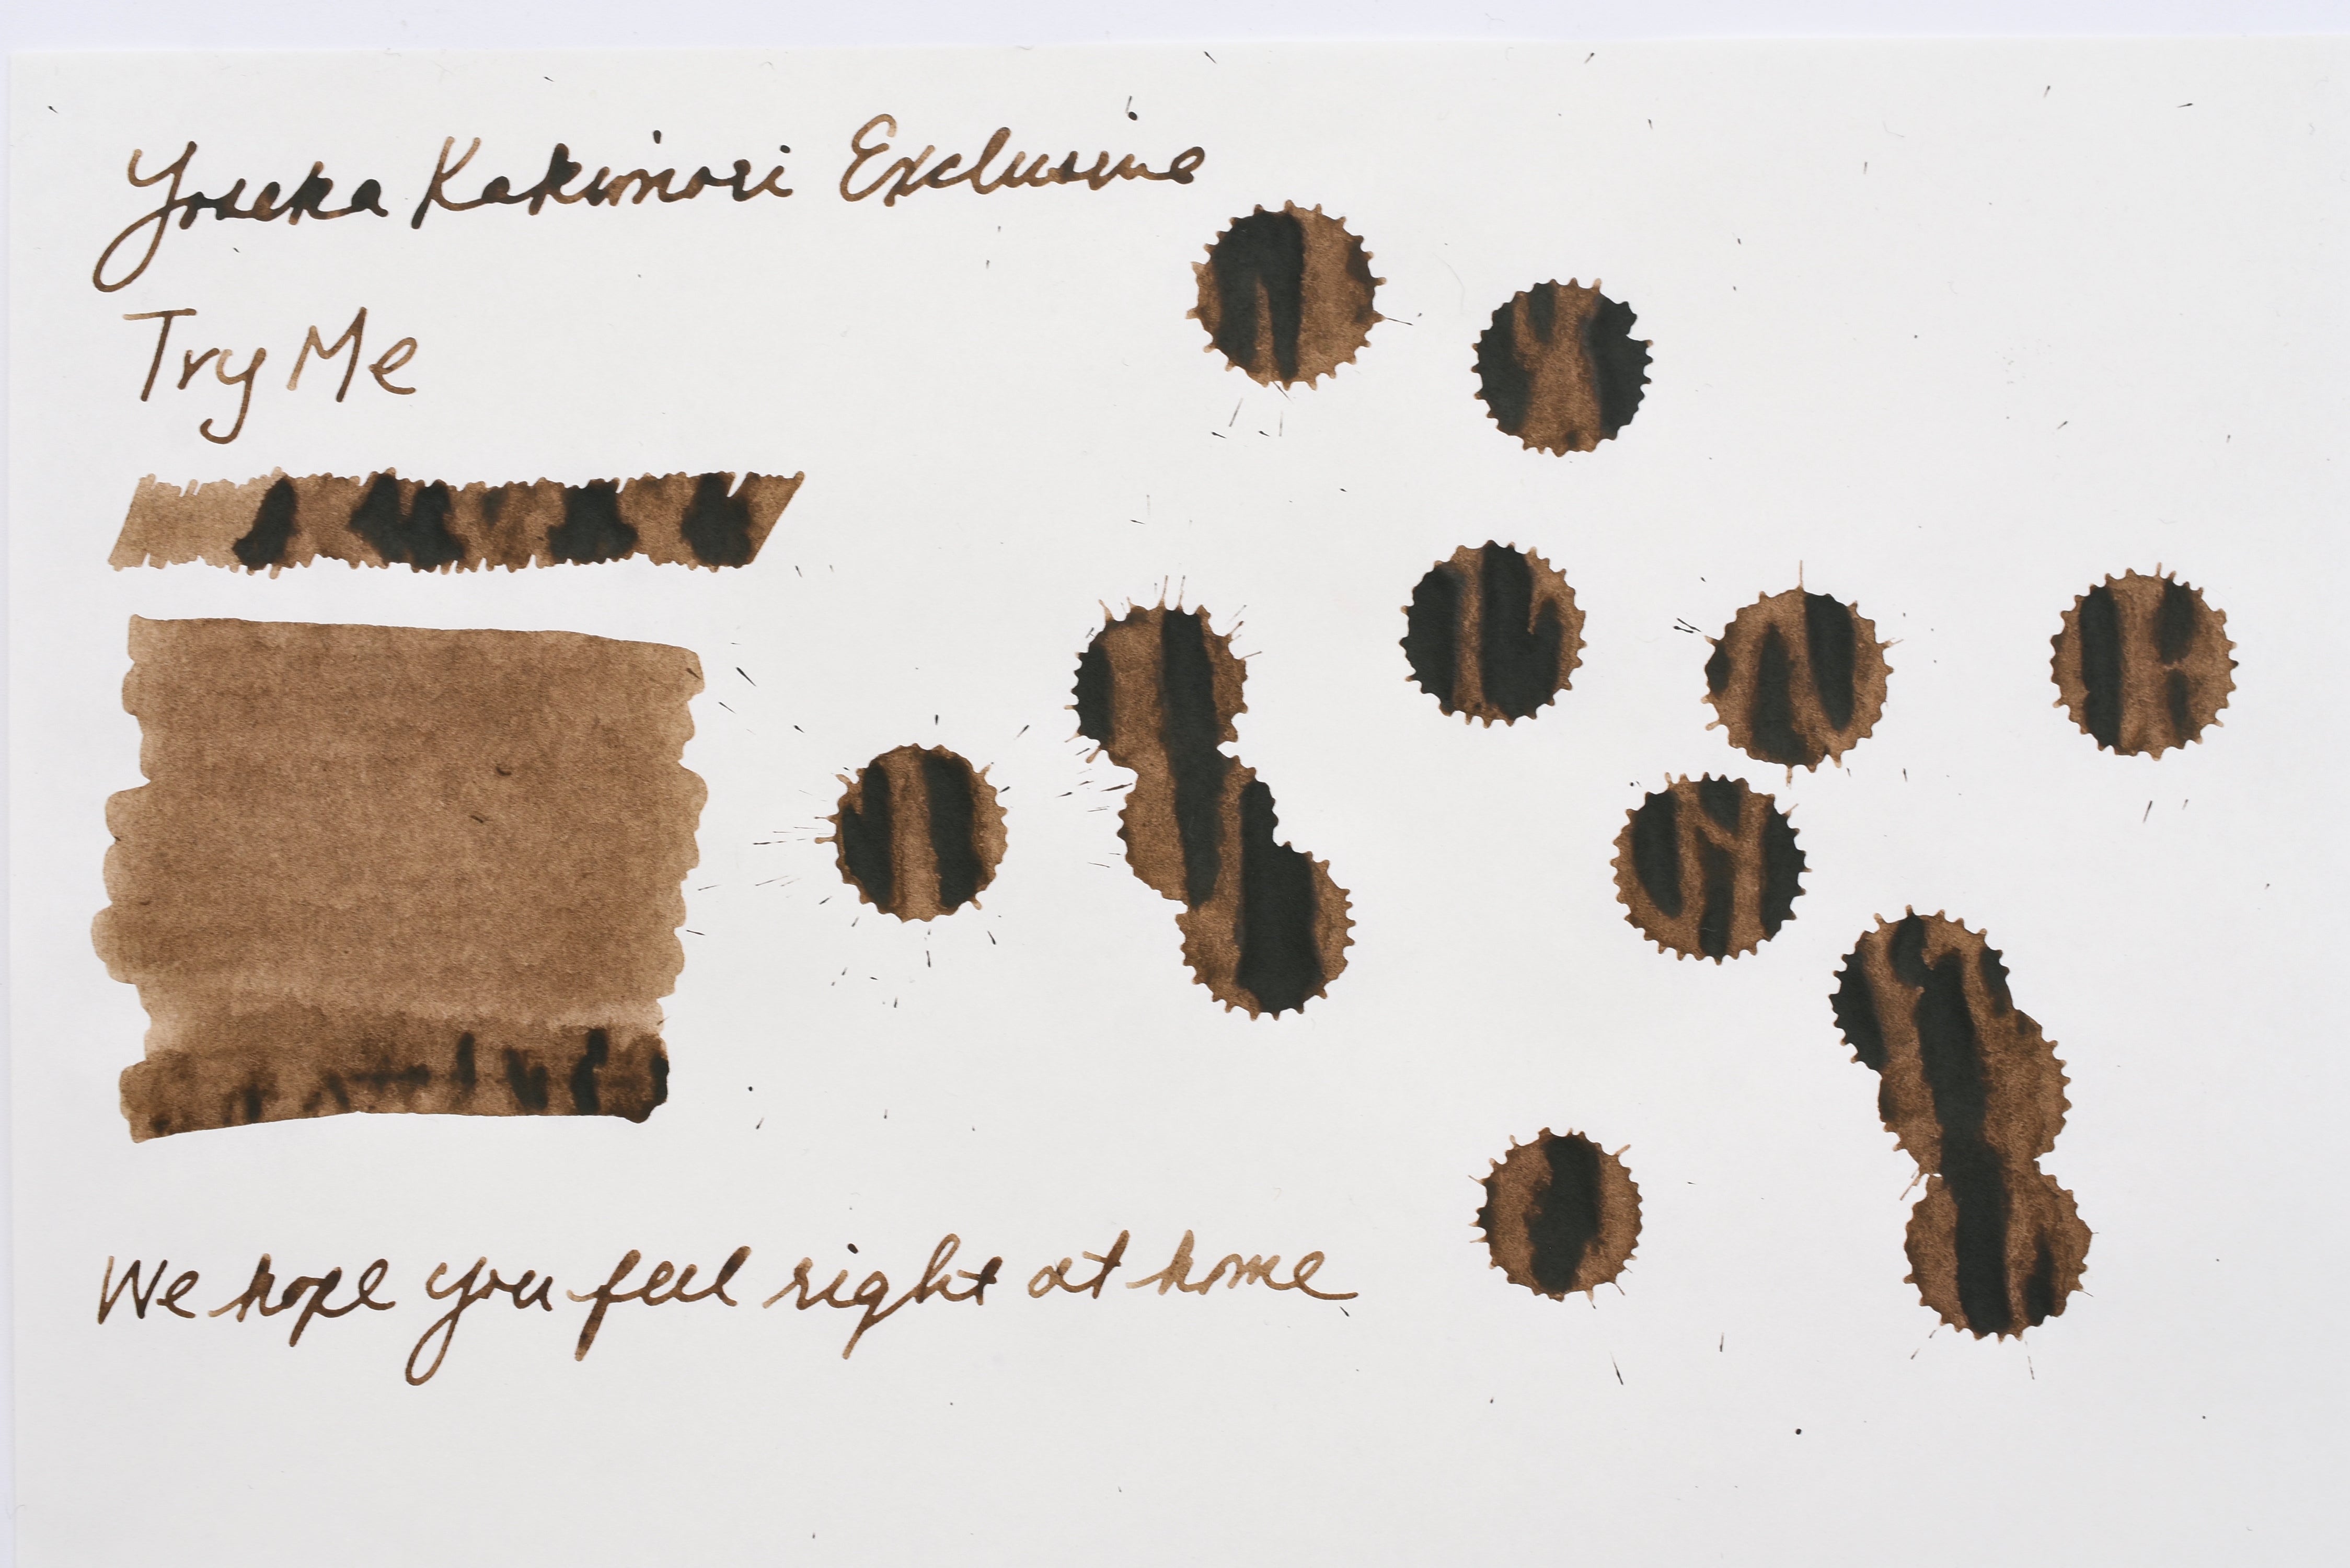 Yoseka Kakimori Exclusive
Try Me
We hope you feel right at home